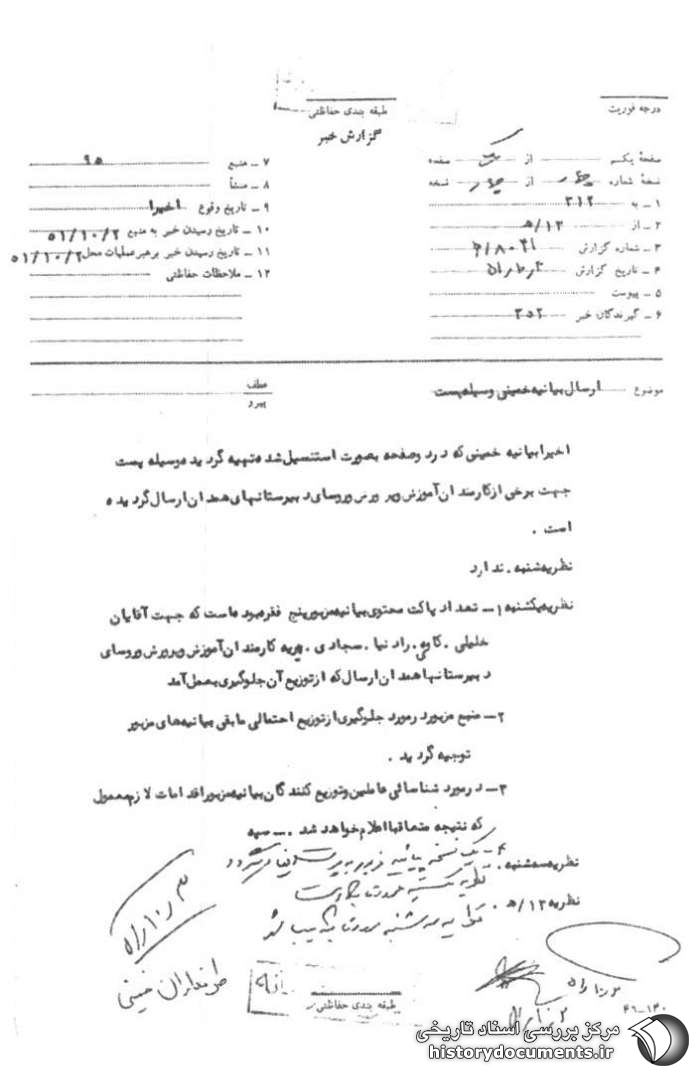 درجه فوریت
طبقه بندی حفاظتی
گزارش خبر
صفحهٔ یکم از یک صفحه
نسخهٔ شماره از نسخه
۱ – به ۳۱۲
۲ – از ۱۲/ه
۳ – شماره گزارش
۴ – تاریخ گزارش
۵ – پیوست
۶ – گیرندگان خبر ۳۵۲
۷ – منبع ۹۵
۸ – منشأ
۹ – تاریخ وقوع اخیرا
۱۰ – تاریخ رسیدن خبر به منبع ۵۱/۱۰/۲
۱۱ – تاریخ رسیدن خبر برهبر عملیات محل ۵۱/۱۰/۲
۱۲ – ملاحظات حفاظتی
موضوع ارسال بیانیه خمینی وسیله پست
عطف
پیرو
اخیرا بیانیه خمینی که در دو صفحه بصورت استنسیل شده تهیه گردیده وسیله پست
جهت برخی از کارمندان آموزش و پرورش و روسای دبیرستانهای همدان ارسال گردیده
است .
نظریه شنبه . ندارد
نظریه یکشنبه ۱– تعداد پاکت محتوی بیانیه مزبور پنج فقره بوده است که جهت آقایان
خلیلی . کاوه . راد نیا . سجادی . کارمندان آموزش و پرورش و روسای
دبیرستانها همدان ارسال که از توزیع آن جلوگیری بعمل آمد
۲– منبع مزبور در مورد جلوگیری از توزیع احتمالی مابقی بیانیه های مزبور
توجیه گردید .
۳– در مورد شناسائی عاملین و توزیع کنندگان بیانیه مزبور اقدامات لازم معمول
که نتیجه متعاقبا اعلام خواهد شد .
۴– یک نسخه بیانیه مزبور به پیوست
نظریه سه شنبه .
نظریه ۱۲/ه .
۳ر۱۰ر۵۱
طرفداران خمینی
طبقه بندی حفاظتی
۴۶–۱۳۰
مرکز بررسی اسناد تاریخی
historydocuments.ir